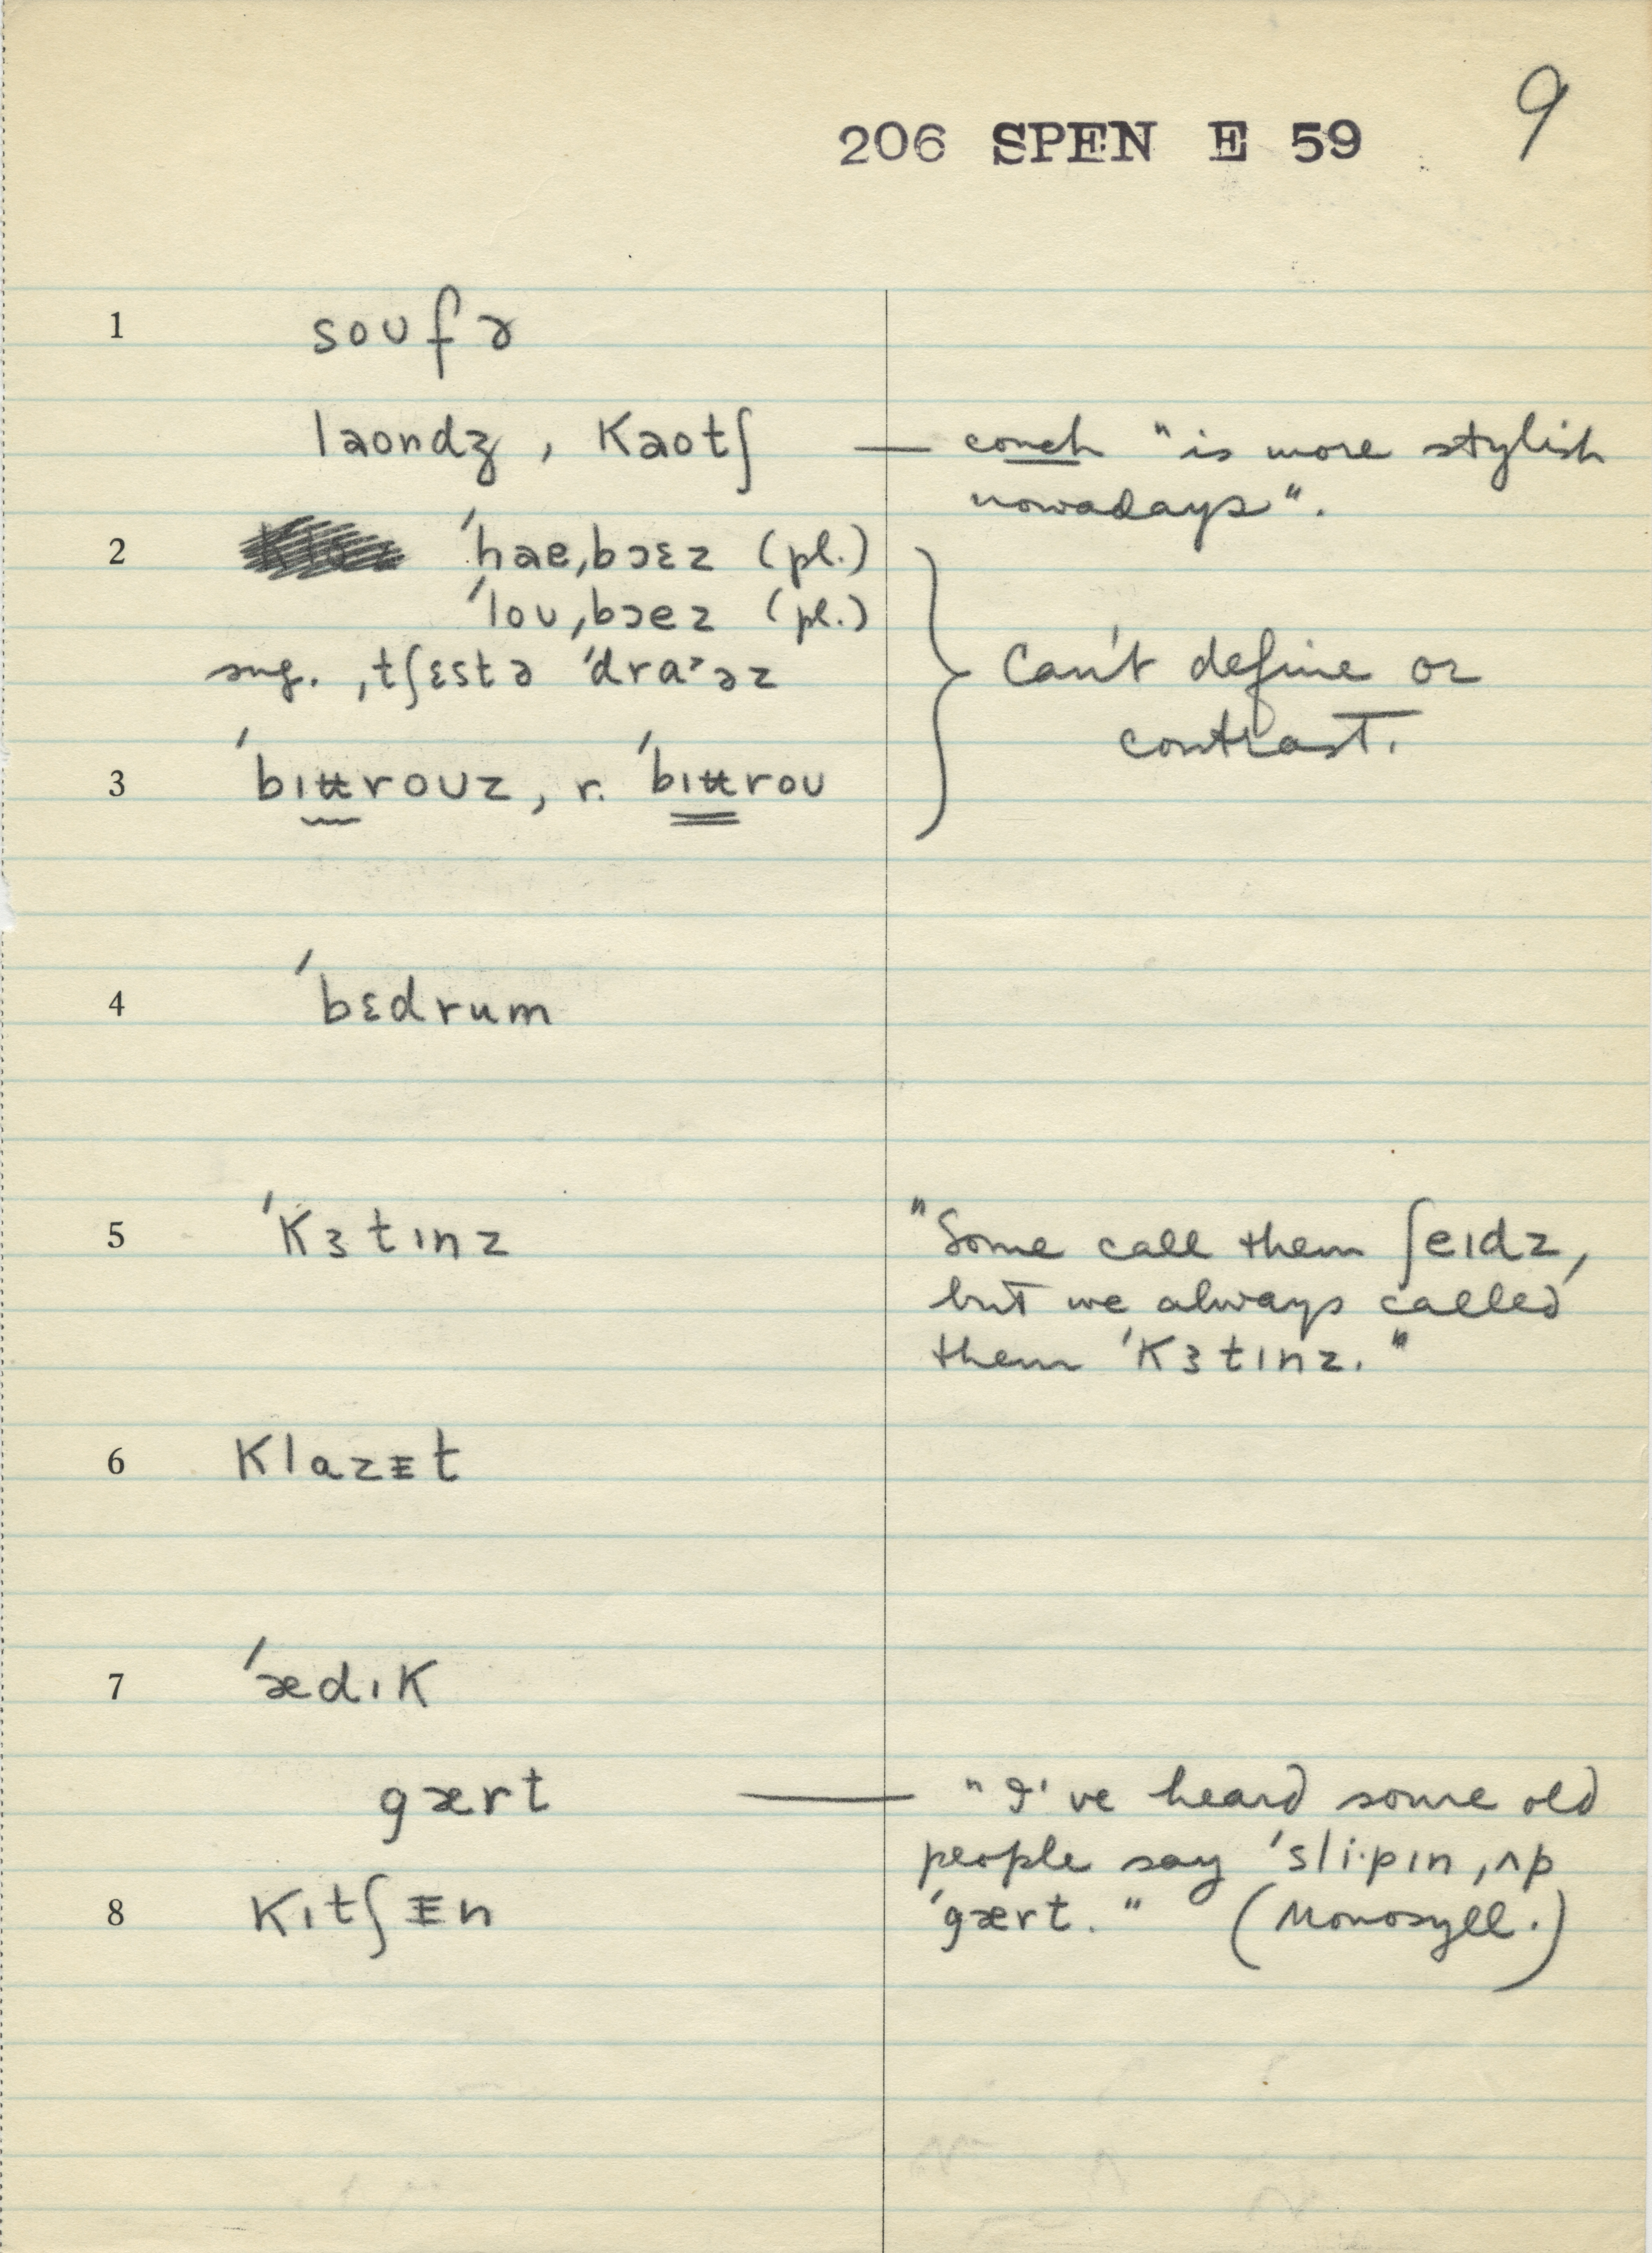 9
206 SPEN E 59
1 soufə
laondʒ, kaotʃ — couch "is more stylish
nowadays".
2 ˈhaeˌbɔɛz (pl.)
ˈlouˌbɔez (pl.)
sug. ˌtʃɛstə ˈdraˑəz
Can't define or
contrast.
3 ˈbɪt̵t̵rouz, r. ˈbɪt̵t̵rou
4 ˈbɛdrum
5 ˈkɜtɪnz
"Some call them ʃeɪdz,
but we always called
them ˈkɜtɪnz."
6 klazᵻt
7 ˈædɪk
gært — "I've heard some old
people say ˈsliˑpɪn ˌʌp
8 kɪtʃᵻn
ˈgært." (Monosyll.)